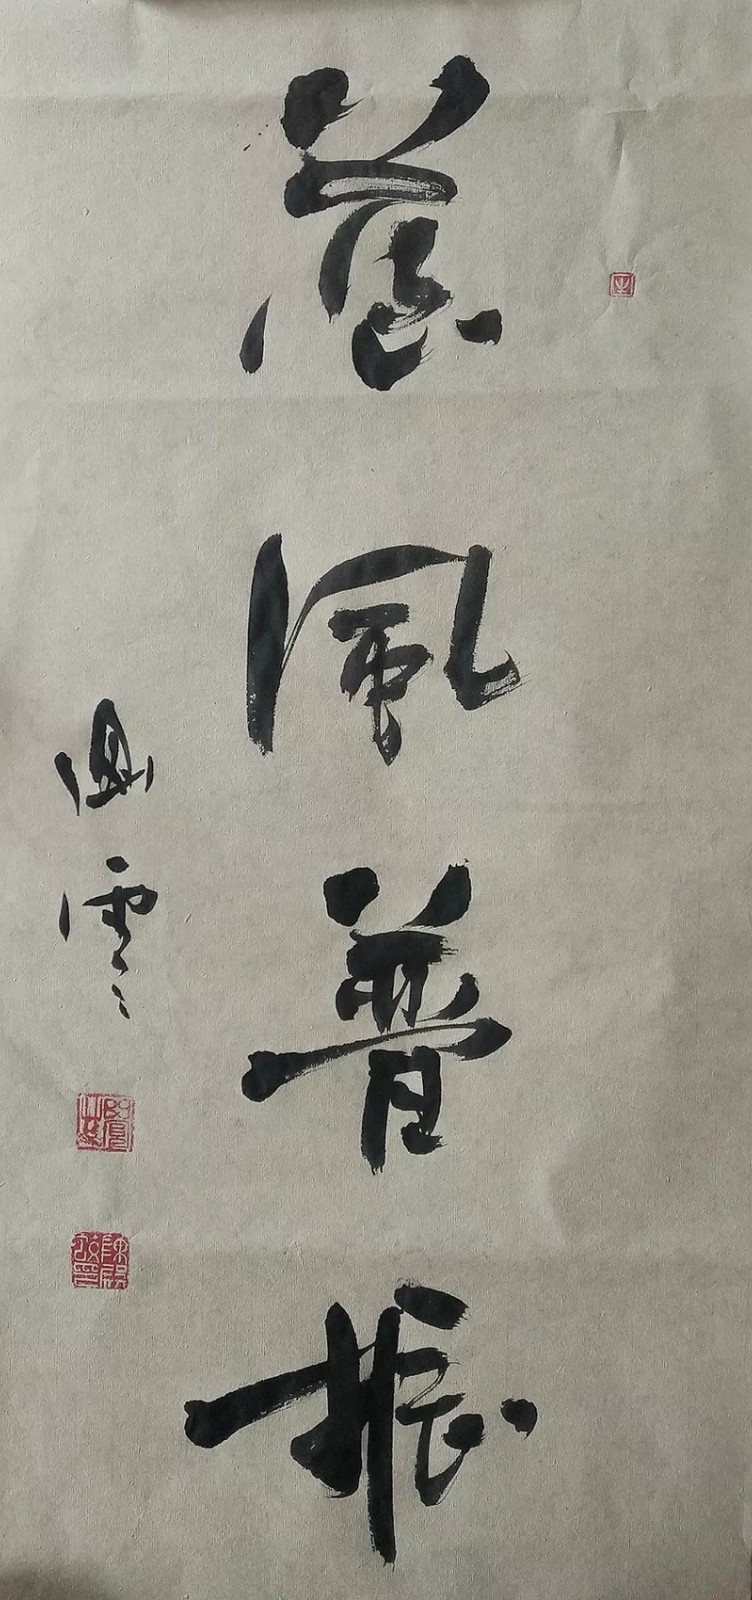 慈風普振
幽雲